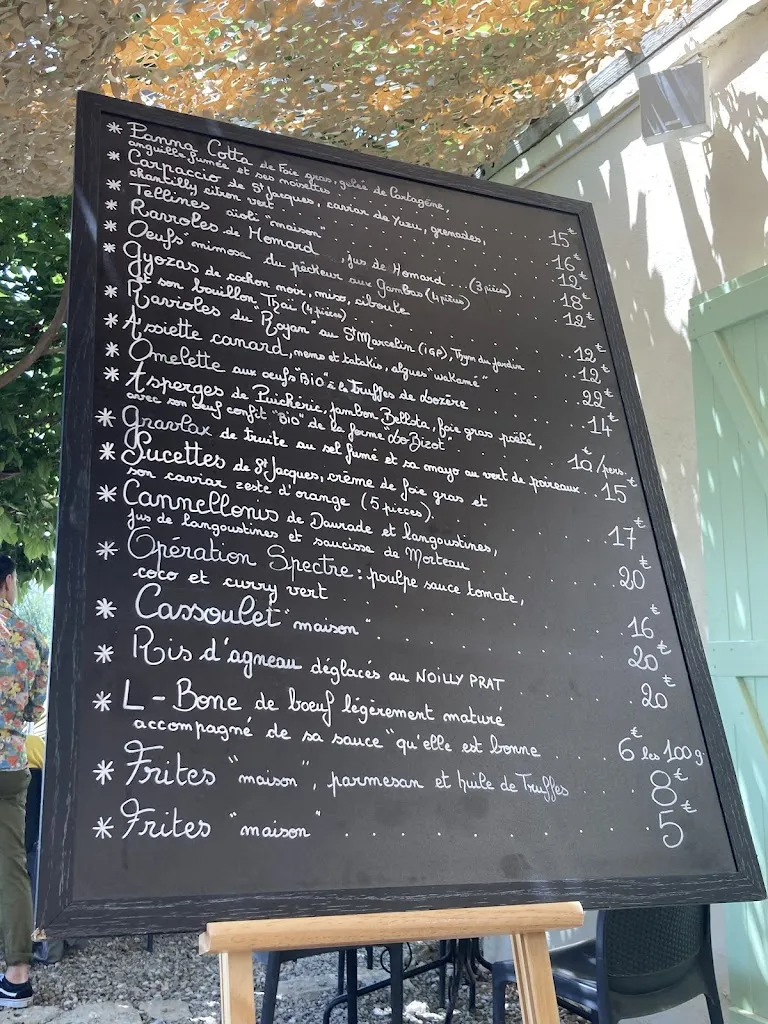 * Panna Cotta de Foie gras, gelée de Cartagène,
anguille fumée et ses noisettes . . . . 15€
* Carpaccio de St Jacques, caviar de Yuzu, grenades,
chantilly citron vert . . . . 16€
* Tellines aïoli "maison" . . . . 12€
* Ravioles de Homard, jus de Homard . . (3 pièces) . . 18€
* Oeufs "mimosa du pêcheur aux Gambas (4 pièces) . . 12€
* Gyozas de cochon noir, miso, ciboute
et son bouillon Thaï (4 pièces) . . . . 12€
* Ravioles du Royan" au St Marcelin (IGP), Thym du jardin . . 12€
* Assiette canard, nems et tatakis, algues "wakamé" . . 22€
* Omelette aux oeufs "BIO" à la Truffes de Lozère . . 14€
* Asperges de Puichéric, jambon Bellota, foie gras poêlé,
avec son oeuf confit "BIO" de la ferme "Lo Bizot" . . 10€/pers.
* Gravlax de truite au sel fumé et sa mayo au vert de poireaux . . 15€
* Sucettes de St Jacques, crème de foie gras et
son caviar zeste d'orange (5 pièces). . . . 17€
* Cannellonis de Daurade et langoustines,
jus de langoustines et saucisse de Morteau . . . . 20€
* Opération Spectre : poulpe sauce tomate,
coco et curry vert . . . . 16€
* Cassoulet "maison" . . . . 20€
* Ris d'agneau déglacés au NOILLY PRAT . . . . 20€
* L-Bone de boeuf légèrement maturé
accompagné de sa sauce "qu'elle est bonne . . . . 6€ les 100g.
* Frites "maison", parmesan et huile de Truffes . . 8€
* Frites "maison" . . . . 5€